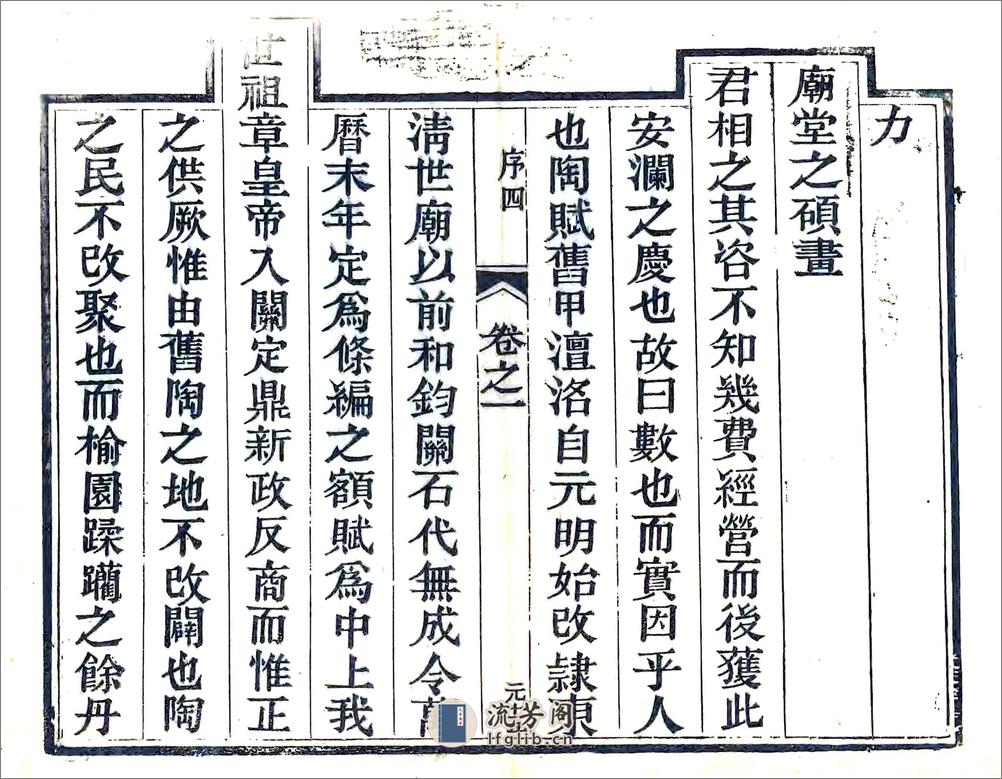 力
廟堂之碩畫
君相之其咨不知幾費經營而後獲此
安瀾之慶也故曰數也而實因乎人
也陶賦舊甲澶洛自元明始改隸東
序四
卷之一
元
清世廟以前和鈞關石代無成令
曆末年定爲條編之額賦爲中上我
世祖章皇帝入關定鼎新政反商而惟正
之供厥惟由舊陶之地不改闢也陶
之民不改聚也而榆園蹂躪之餘丹
流芳阁
lfglib.cn